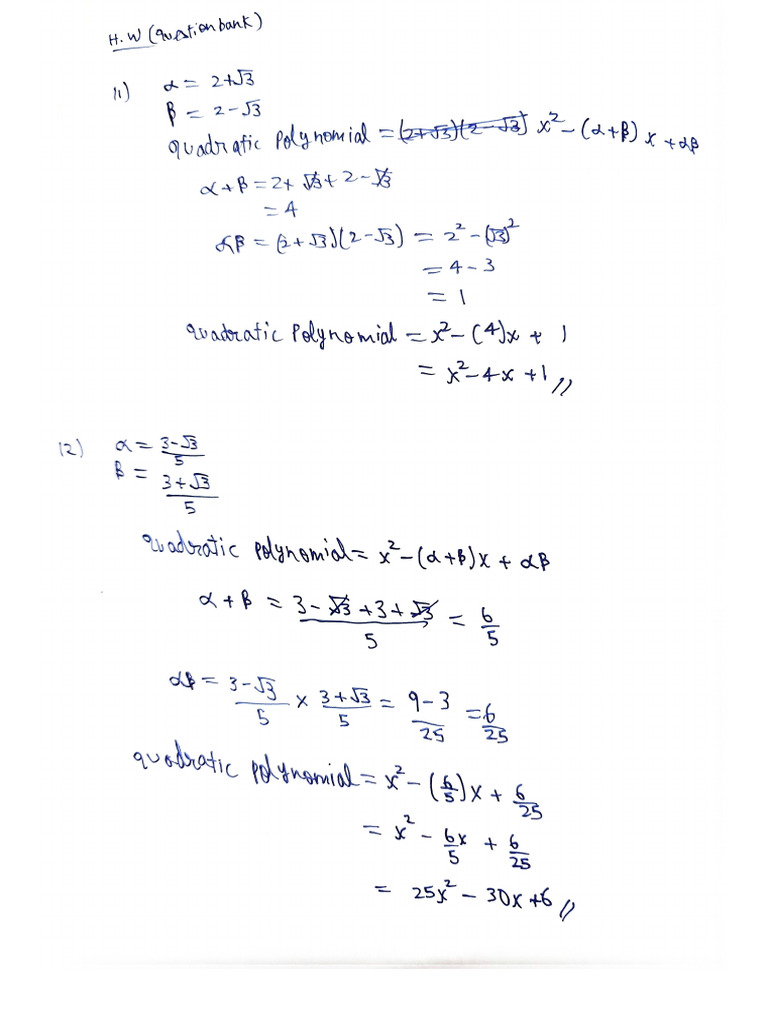 H.W (Question bank)
11) α = 2+√3
β = 2-√3
Quadratic Polynomial = (2+√3)(2-√3) x² - (α+β) x + αβ
α+β = 2+√3+2-√3
= 4
αβ = (2+√3)(2-√3) = 2² - (√3)²
= 4-3
= 1
Quadratic Polynomial = x² - (4)x + 1
= x² - 4x + 1 //
12) α = (3-√3)/5
β = (3+√3)/5
Quadratic Polynomial = x² - (α+β)x + αβ
α+β = (3-√3+3+√3)/5 = 6/5
αβ = (3-√3)/5 × (3+√3)/5 = (9-3)/25 = 6/25
Quadratic Polynomial = x² - (6/5)x + 6/25
= x² - 6x/5 + 6/25
= 25x² - 30x + 6 //